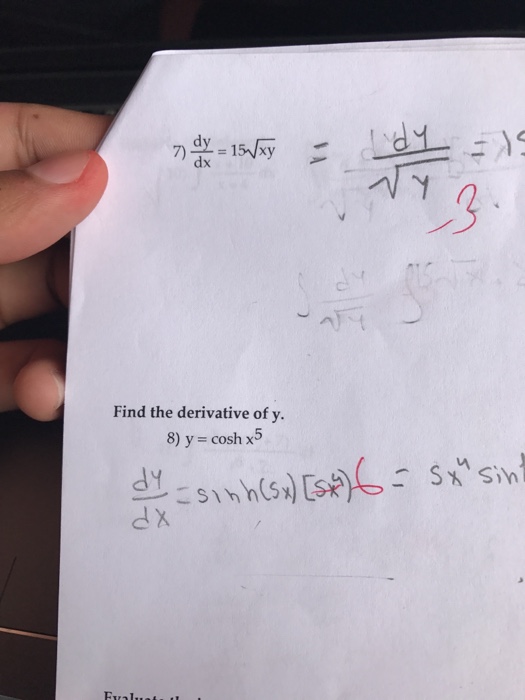 7) dy/dx = 15√xy = dy/√y = 15
-3
∫ dy/√y ∫15√x
Find the derivative of y.
8) y = cosh x⁵
dy/dx = sinh(5x) [5x⁴) 6 = 5x⁴ sinh